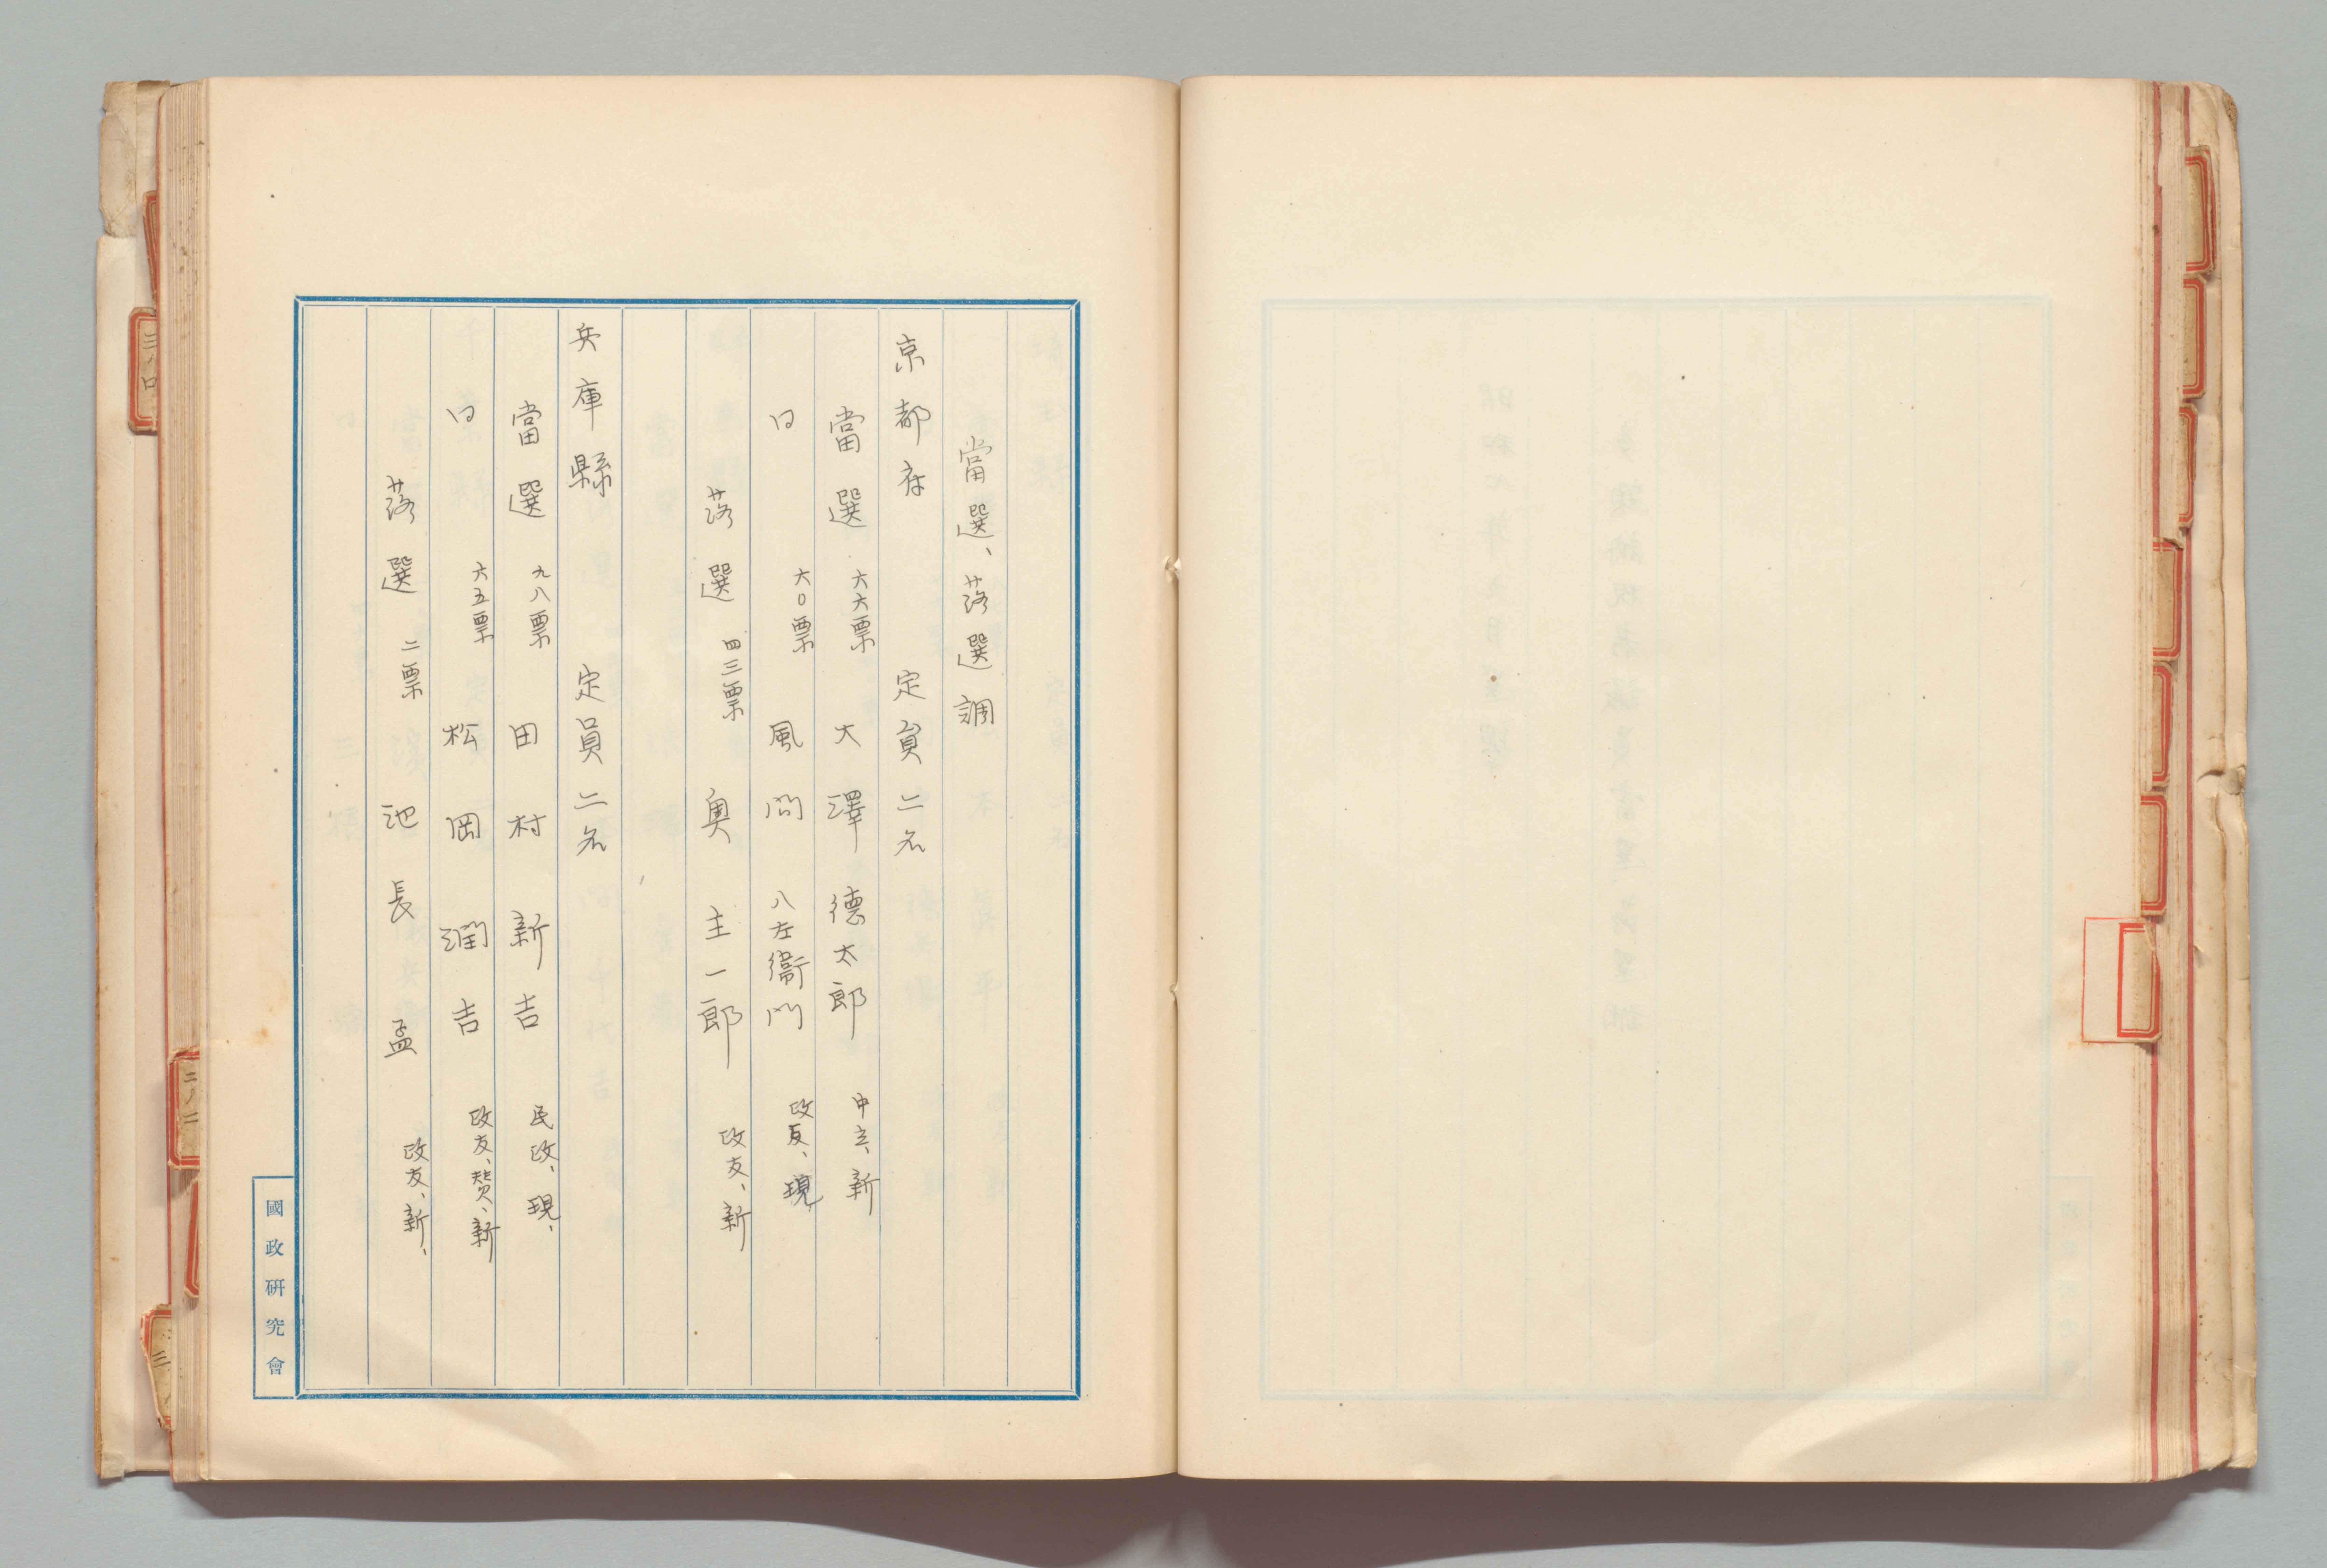 當選、落選調
京都府 定員二名
當選 六六票 大澤德太郎 中立、新
〃 六〇票 風間八左衛門 政友、現
落選 四三票 奥主一郎 政友、新
兵庫縣 定員二名
當選 九八票 田村新吉 民政、現、
〃 六五票 松岡潤吉 政友、賛、新
落選 二票 池長孟 政友、新、
國政研究會
三ノ口
二ノ二
三